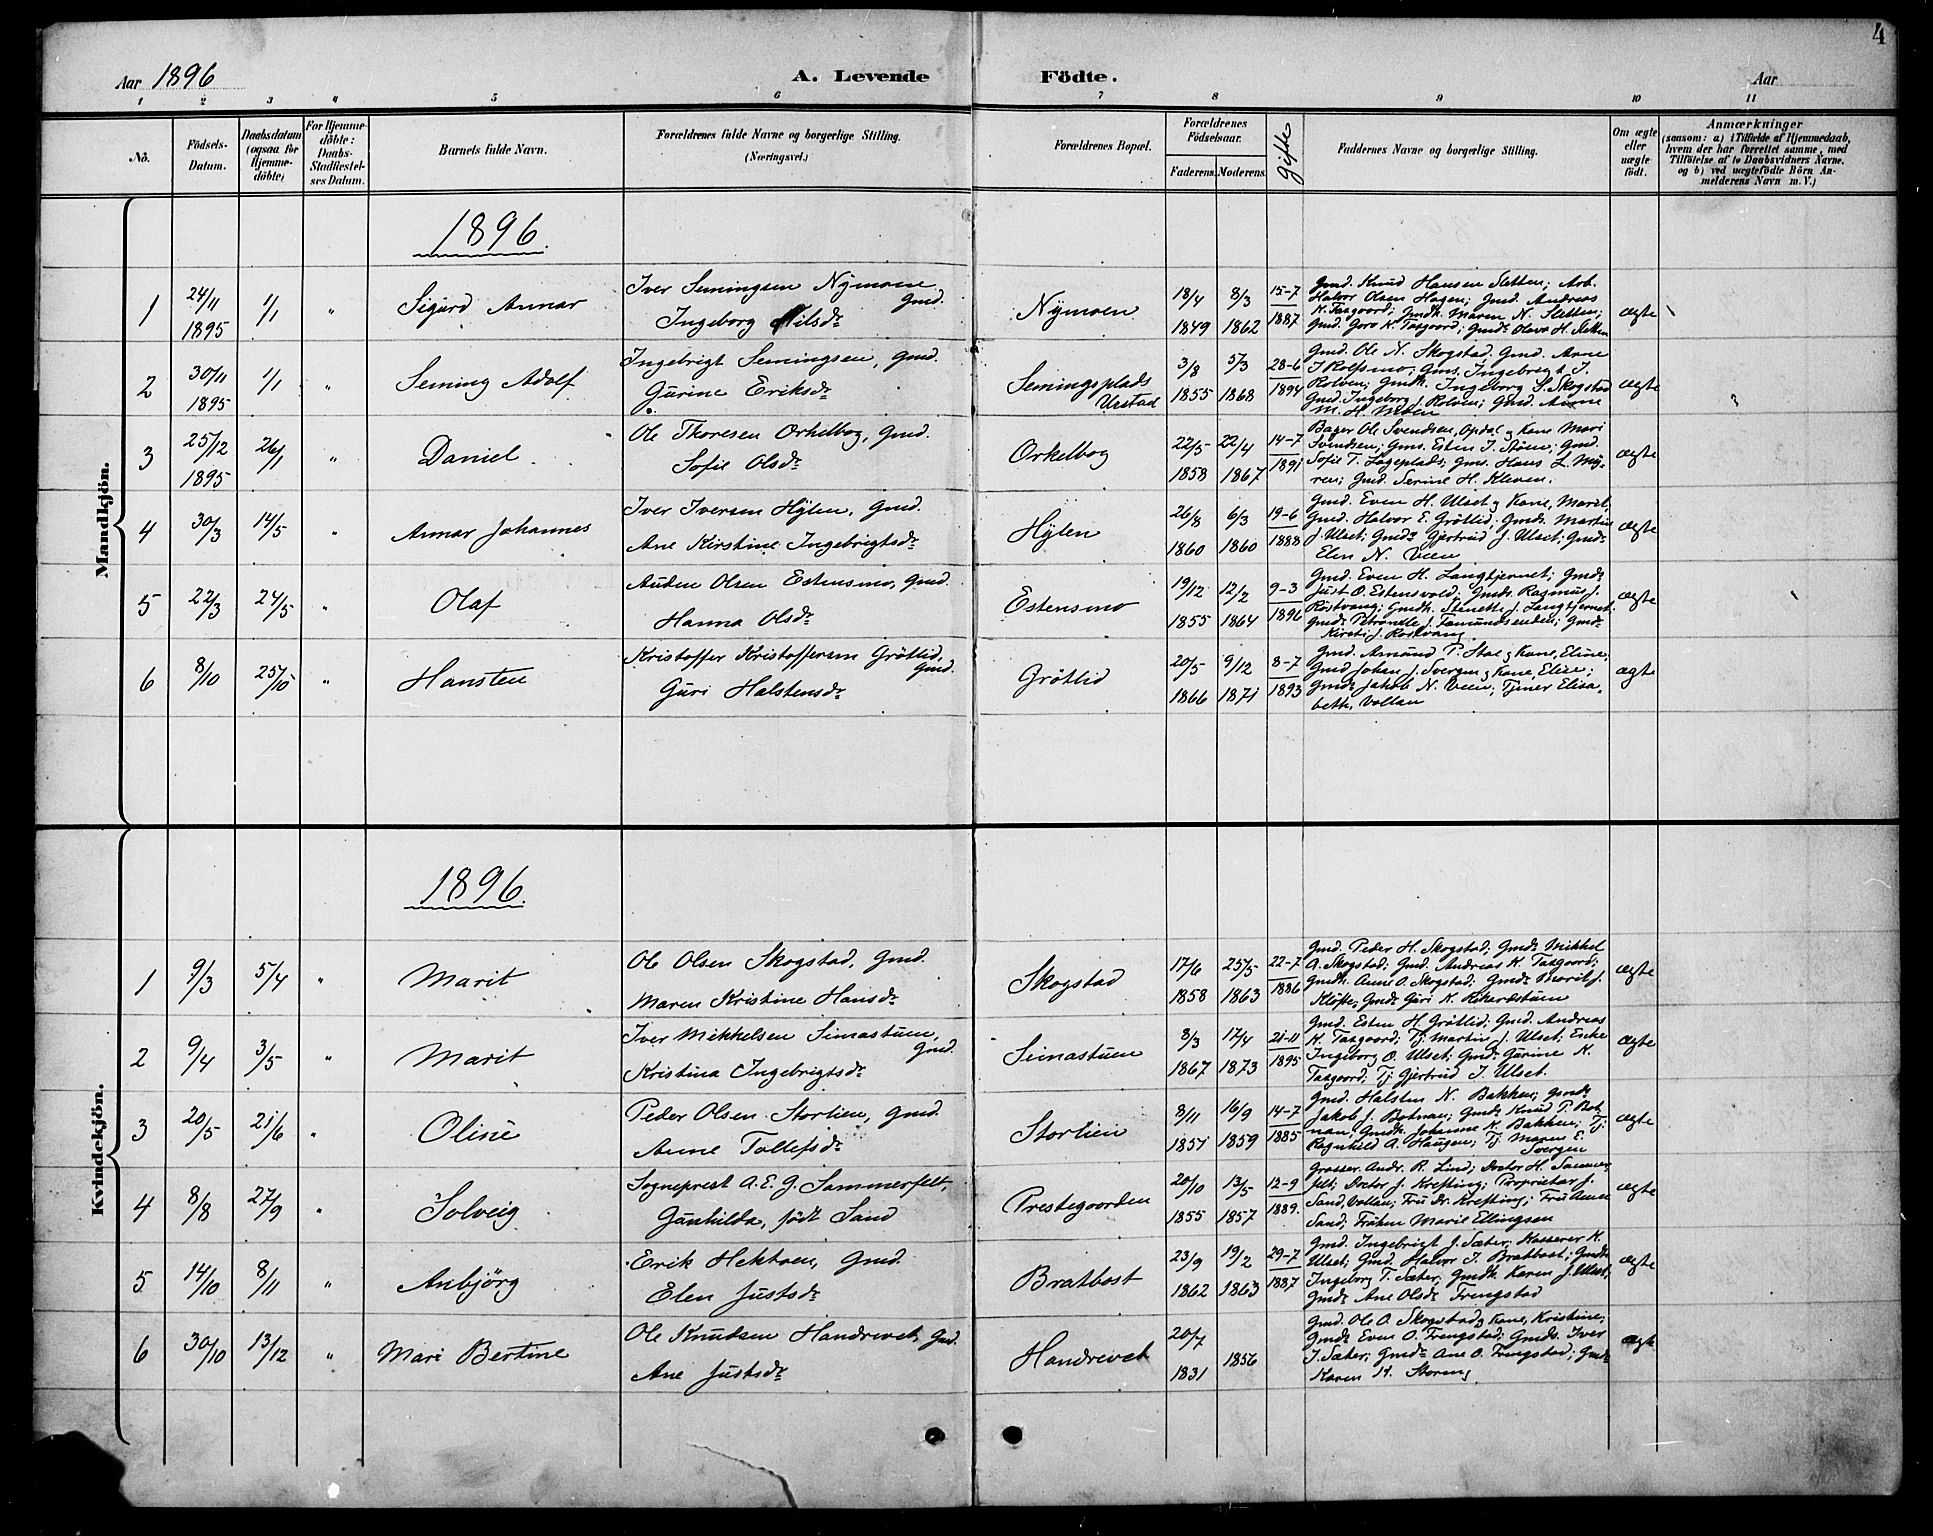 4
Aar 1896 A. Levende Födte. Aar
1 2 3 4 5 6 7 8 9 10 11
Nö.
Födsels-Datum.
Daabsdatum (ogsaa for Hjemme-döbte)
For Hjemme-döbte: Daabs-Stadfæstel-ses Datum.
Barnets fulde Navn.
Forældrenes fulde Navne og borgerlige Stilling.
(Næringsvei.)
Forældrenes Bopæl.
Forældrenes Födselsaar.
Faderens. Moderens.
Gifte
Faddernes Navne og borgerlige Stilling.
Om ægte eller uægte födt.
Anmærkninger
(saasom: a) i Tilfælde af Hjemmedaab,
hvem der har forrettet samme, med
Tilföielse af to Daabsvidners Navne,
og b) ved uægtefödte Börn An-
melderens Navn m. V.)
Mandkjön.
1896.
1 24/11 1895 1/1 " Sigurd Annar
Iver Semingsen Nymoen Gmd.
Ingeborg Nilsdr
Nymoen 18/4 1849 8/3 1862 15-7 1887
Gmd. Knud Hansen Sletten; Arb.
Halvor Olsen Hagen; Gmd. Andreas
K. Taagaard; Gmdk. Maren N. Sletten;
Gmd. Goro K. Taagaard; Gmdr Olava H. Sletten
ægte
2 30/11 1895 1/1 " Seming Adolf
Ingebrigt Semingsen, Gmd.
Gurine Eriksdr
Semingsplads Urstad 3/8 1855 5/3 1868 28-6 1894
Gmd. Ole N. Skogstad, Gmd. Arne
J. Rolfsmo; Gms. Ingebregt J.
Rolven; Gmdk. Ingeborg S. Skogstad
Gmd. Ingeborg J. Rolven; Gmd. Anne
M. H. Moen
ægte
3 25/12 1895 26/1 " Daniel
Ole Thoresen Orkelbog, Gmd.
Sofie Olsdr
Orkelbog 22/5 1858 22/4 1867 14-7 1891
Bager Ole Svendsen, Opdal og Kone Mari
Svendsen; Gms. Esten J. Stöen; Gmd.
Sofie T. Lögeplads; Gms. Hans L. My-
ren; Gmd. Serine H. Kleven.
ægte
4 30/3 14/5 " Annar Johannes
Iver Iversen Hylen, Gmd.
Ane Kirstine Ingebrigtsdr
Hylen 26/8 1860 6/3 1860 19-6 1888
Gmd. Even H. Ulset og Kone, Maret,
Gmd. Halvor E. Grötlid; Gmds. Martin
J. Ulset; Gmdr Gjertrud J. Ulset; Gmdr
Elen N. Veen
ægte
5 22/3 24/5 " Olaf
Auden Olsen Estensmo, Gmd.
Hanna Olsdr
Estensmo 19/12 1855 12/2 1864 9-3 1896
Gmd. Even H. Langtjernet; Gmds
Just O. Estensvold. Gmds Rasmus J.
Röstvang; Gmdk. Stenette J. Langtjernet
Gmdr Petronelle J. Tamundsenden; Gmdr
Kirsti J. Röstvang
ægte
6 8/10 25/10 " Hansten
Kristoffer Kristoffersen Grötlid, Gmd.
Guri Halstensdr
Grötlid 20/5 1866 9/12 1871 8-7 1893
Gmd. Amund P. Stai og Kone, Eline;
Gmd Johan J. Svergen og Kone, Elie;
Gmds Jakob N. Veen; Tjener Elisa-
beth, Vollan
ægte
Kvindekjön.
1896.
1 9/3 5/4 " Marit
Ole Olsen Skogstad, Gmd.
Maren Kristine Hansdr
Skogstad 17/6 1858 25/5 1863 22-7 1886
Gmd. Peder H. Skogstad; Gmds Mikkel
A. Skogstad; Gmd. Andreas K. Taagaard;
Gmdk. Anne O. Skogstad; Gmdr Marit J.
Klöfte; Gmdr Guri K. Rikardstuen
ægte
2 9/4 3/5 " Marit
Iver Mikkelsen Simastuen, Gmd.
Kristina Ingebrigtsdr
Simastuen 8/3 1867 17/4 1873 21-11 1895
Gmd. Esten H. Grötlid; Gmd. Andreas
K. Taagaard; Tj. Martin J. Ulset; Enke
Ingeborg O. Ulset; Gmdr Gurine K.
Taagaard; Tj. Gjertrud I. Ulset.
ægte
3 20/5 21/6 " Oline
Peder Olsen Storlien, Gmd.
Anne Tollefsdr
Storlien 8/11 1857 16/9 1859 14-7 1885
Gmd. Halsten N. Bakken; Gmds
Jakob J. Botnan; Gmds Knud P. Bot-
nan, Gmdk. Johanne K. Bakken; Tj.
Ragnhild A. Haugen; Tj. Maren E.
Svergen
ægte
4 8/8 27/9 " Solveig
Sogneprest A. E. G. Sommerfelt,
Gunhilda, född Sand
Prestegaarden 20/10 1855 13/5 1857 12-9 1889.
Grosser. Andr. R. Lind; Doctor H. Sommer-
felt; Doctor J. Krefting; Proprietær J.
Sand, Vollan; Fru Dr. Krefting; Fru Anne
Sand; Fröken Marie Ellingsen
ægte
5 14/10 8/11 " Anbjörg
Erik Hektoen, Gmd.
Elen Justsdr
Bratbost 23/9 1862 19/2 1863 29-7 1887
Gmd. Ingebrigt J. Sæter; Kasserer K.
Ulset; Gmd. Halvor I. Bratbost; Gmdk
Ingeborg T. Sæter; Gmdk. Karen J. Ulset;
Gmdr Ane Olsdr Trengstad
ægte
6 30/10 13/12 " Mari Bertine
Ole Knudsen Handrevet, Gmd.
Ane Justsdr
Handrevet 20/7 1831 1856
Gmd. Ole O. Skogstad og Kone, Kristine;
Gmds Even O. Trengstad; Gmds. Iver
I. Sæter; Gmdr Ane O. Trengstad; Gmdr
Karen K. Storeng
ægte